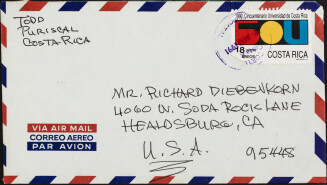 TODD
PURISCAL
COSTA RICA
50 Cincuentenario Universidad de Costa Rica
18
COSTA RICA
MR. RICHARD DIEBENKORN
4060 W. SODA ROCK LANE
HEALDSBURG, CA
U.S.A. 95448
VIA AIR MAIL
CORREO AEREO
PAR AVION